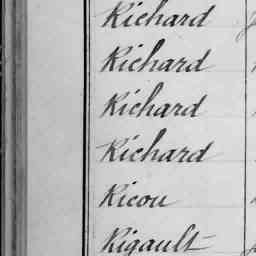 Richard
Richard
Richard
Richard
Ricou
Rigault